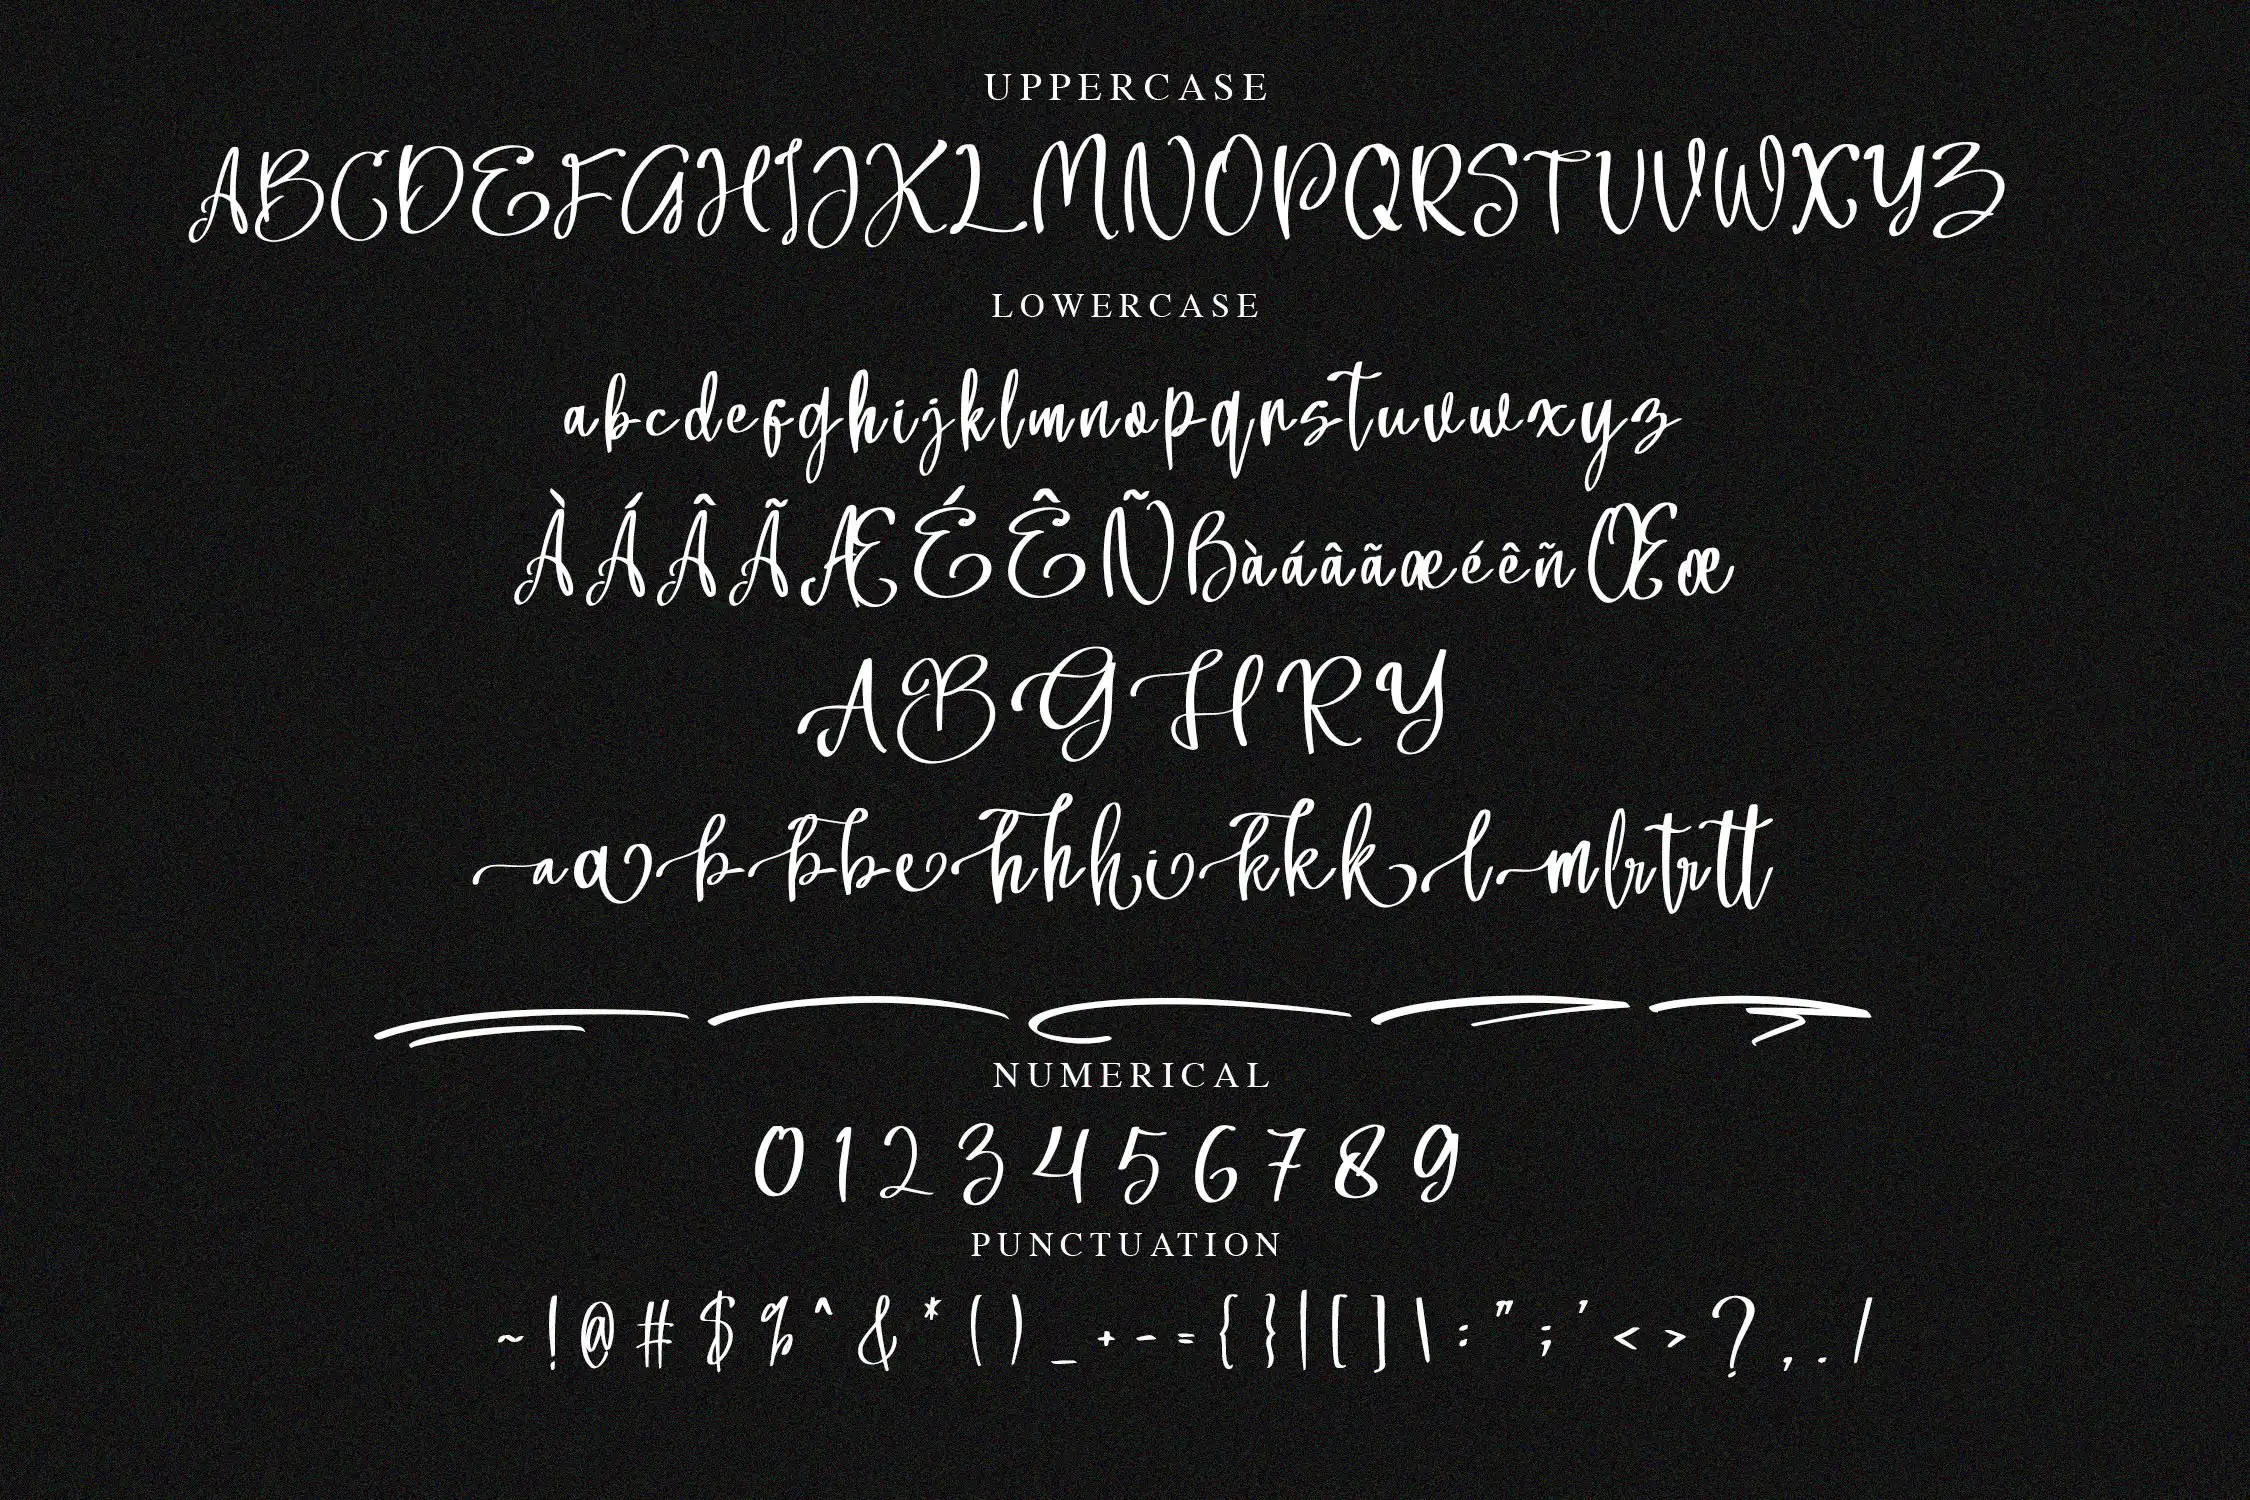 UPPERCASE
ABCDEFGHIJKLMNOPQRSTUVWXYZ
LOWERCASE
abcdefghijklmnopqrstuvwxyz
ÀÁÂÃÆÉÊÑßàáâãæéêñŒœ
ABGHRY
aabbbehhhikkklmlrtrtt
NUMERICAL
0 1 2 3 4 5 6 7 8 9
PUNCTUATION
~ ! @ # $ % ^ & * ( ) _ + - = { } | [ ] \ : " ; ' < > ? , . /